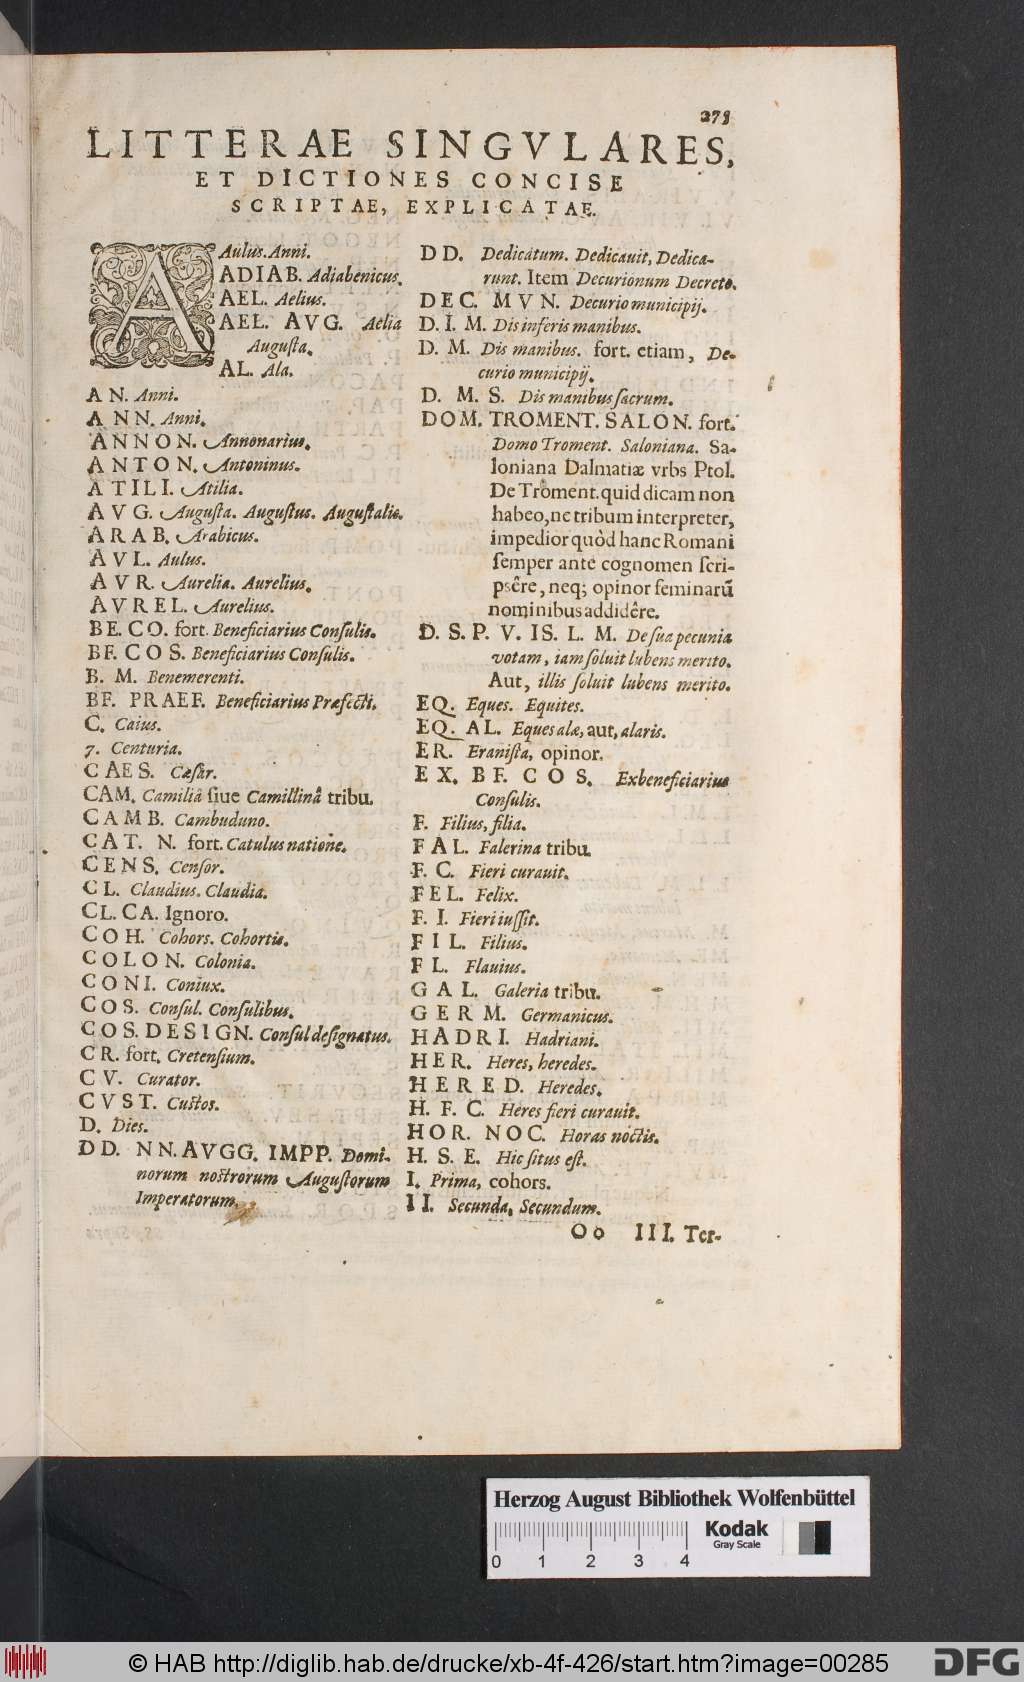 273
LITTERAE SINGVLARES,
ET DICTIONES CONCISE
SCRIPTAE, EXPLICATAE.
A Aulus. Anni.
ADIAB. Adiabenicus.
AEL. Aelius.
AEL. AVG. Aelia
Auguſta.
AL. Ala.
AN. Anni.
ANN. Anni.
ANNON. Annonarius.
ANTON. Antoninus.
ATILI. Atilia.
AVG. Auguſta. Auguſtus. Auguſtalis.
ARAB. Arabicus.
AVL. Aulus.
AVR. Aurelia. Aurelius.
AVREL. Aurelius.
BE. CO. fort. Beneficiarius Conſulis.
BF. COS. Beneficiarius Conſulis.
B. M. Benemerenti.
BF. PRAEF. Beneficiarius Præfecti.
C. Caius.
7. Centuria.
CAES. Cæſar.
CAM. Camiliâ ſiue Camillinâ tribu.
CAMB. Cambuduno.
CAT. N. fort. Catulus natione.
CENS. Cenſor.
CL. Claudius. Claudia.
CL. CA. Ignoro.
COH. Cohors. Cohortis.
COLON. Colonia.
CONI. Coniux.
COS. Conſul. Conſulibus.
COS. DESIGN. Conſul deſignatus.
CR. fort. Cretenſium.
CV. Curator.
CVST. Cuſtos.
D. Dies.
DD. NN. AVGG. IMPP. Domi-
norum noſtrorum Auguſtorum
Imperatorum.
DD. Dedicatum. Dedicauit, Dedica-
runt. Item Decurionum Decreto.
DEC. MVN. Decurio municipij.
D. I. M. Dis inferis manibus.
D. M. Dis manibus. fort. etiam, De-
curio municipij.
D. M. S. Dis manibus ſacrum.
DOM. TROMENT. SALON. fort.
Domo Troment. Saloniana. Sa-
loniana Dalmatiæ vrbs Ptol.
De Troment. quid dicam non
habeo, ne tribum interpreter,
impedior quòd hanc Romani
ſemper ante cognomen ſcri-
psêre, neq; opinor feminarū
nominibus addidêre.
D. S. P. V. IS. L. M. De ſua pecunia
votam, iam ſoluit lubens merito.
Aut, illis ſoluit lubens merito.
EQ. Eques. Equites.
EQ. AL. Eques alæ, aut, alaris.
ER. Eraniſta, opinor.
EX. BF. COS. Exbeneficiarius
Conſulis.
F. Filius, filia.
FAL. Falerina tribu.
F. C. Fieri curauit.
FEL. Felix.
F. I. Fieri iuſſit.
FIL. Filius.
FL. Flauius.
GAL. Galeria tribu.
GERM. Germanicus.
HADRI. Hadriani.
HER. Heres, heredes.
HERED. Heredes.
H. F. C. Heres fieri curauit.
HOR. NOC. Horas noctis.
H. S. E. Hic ſitus eſt.
I. Prima, cohors.
II. Secunda, Secundum.
Oo III. Ter-
Herzog August Bibliothek Wolfenbüttel
Kodak
Gray Scale
0 1 2 3 4
© HAB http://diglib.hab.de/drucke/xb-4f-426/start.htm?image=00285
DFG